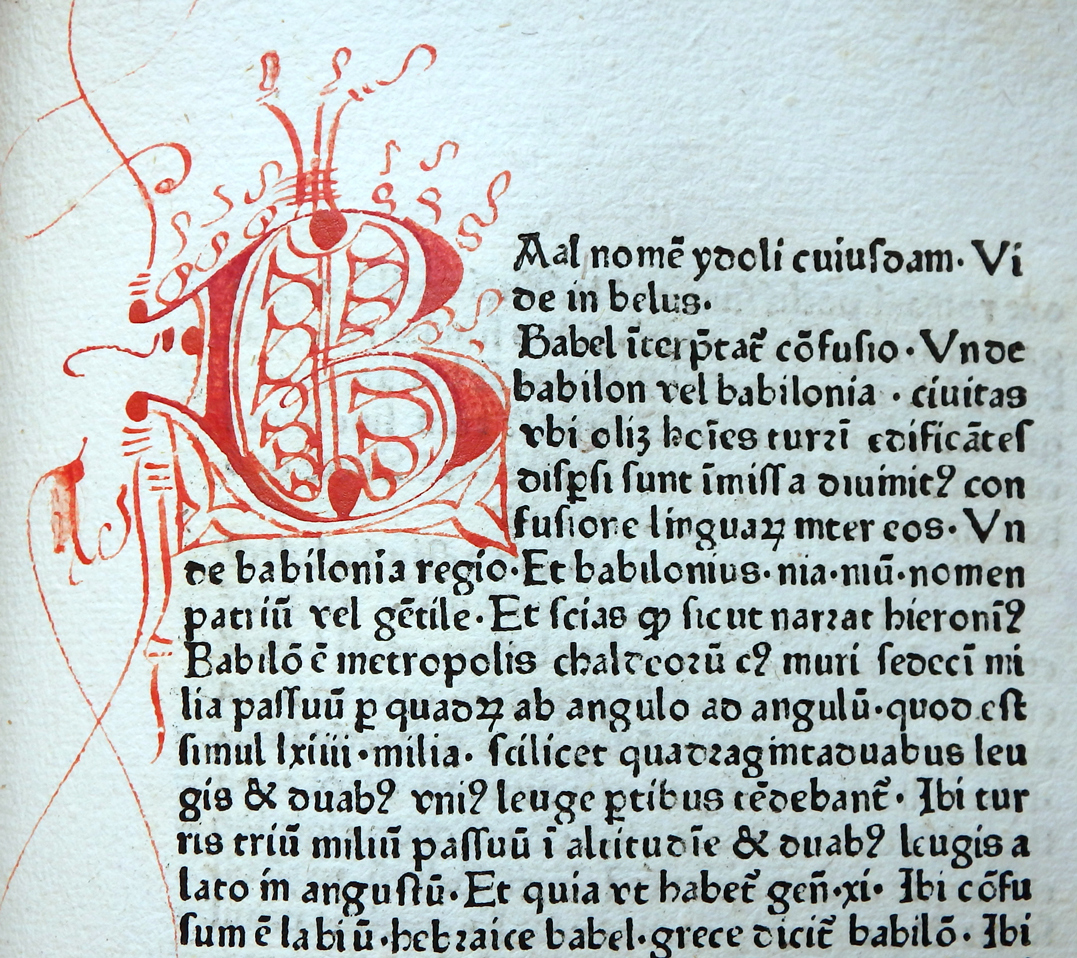 BAal nomē ydoli cuiuſdam. Vi
de in belus.
Babel īterp̄tat᷑ cōfuſio. Vnde
babilon vel babilonia . ciuitas
vbi oliʒ hoīes turrī edificātes
diſꝑſi ſunt īmiſſa diuinitꝰ con
fuſione linguaꝝ inter eos. Vn
de babilonia regio. Et babilonius. nia. niū. nomen
patriū vel gētile. Et ſcias ꝙ ſicut narrat hieronīꝰ
Babilō ē metropolis chaldeoꝛū cꝰ muri ſedecī mi
lia paſſuū ꝑ quadꝝ ab angulo ad angulū. quod eſt
ſimul lxiiii. milia. ſcilicet quadꝛagintaduabus leu
gis & duabꝰ vniꝰ leuge ꝑtibus tēdebant᷑. Ibi tur
ris triū miliū paſſuū ī altitudīe & duabꝰ leugis a
lato in anguſtū. Et quia vt habet᷑ gen̄. xi. Ibi cōfu
ſum ē labiū. hebꝛaice babel. grece dicit᷑ babilō. Ibi